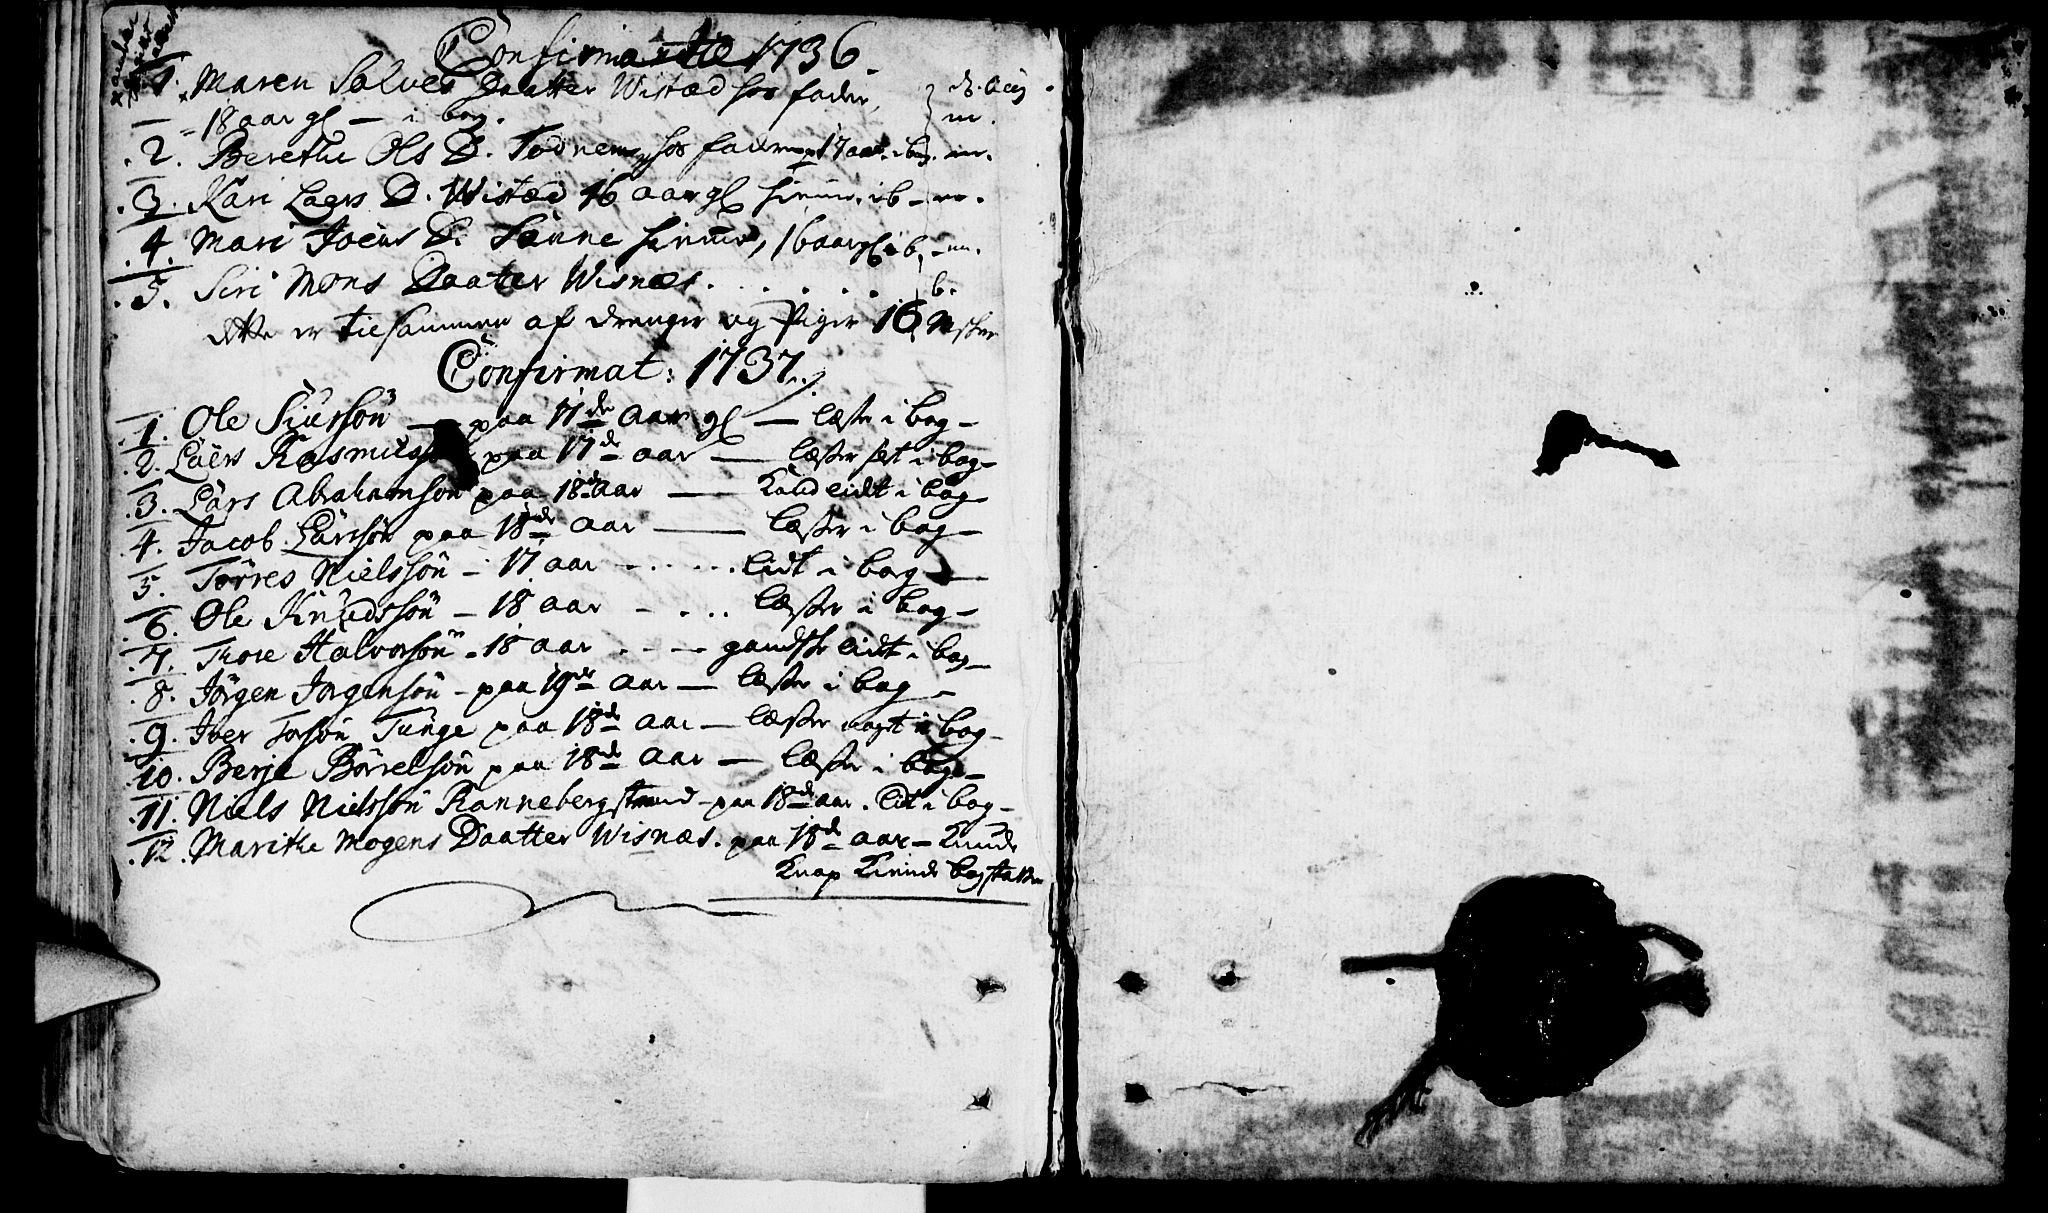 Confirmerte 1736
1. Maren Salves Daatter Wistæd hos fader,
18 aar gl — i bog.
2. Berethe Ols D. Todnem hos faderen 17 aar. i bog.
3. Kari Laers D. Wistæd 16 aar gl hiemme. i b —
4. Mari Joens D. Sanne hiemme, 16 aar gl i b.
5. Siri Mons Daatter Wisnæs . . . . . b.
dette er tilsammen af drenger og Piger 16
Confirmat: 1737.
1. Ole Siursön — paa 17de Aar gl — læser i bog —
2. Laers Rasmusön paa 17de aar — læser let i bog —
3. Lars Abrahamsön paa 18de Aar — i bog —
4. Jacob Larssön paa 18de aar — læser i bog —
5. Törres Nielssön — 17 aar — . . . . lidt i bog —
6. Ole Knudssön — 18 aar — . . . læser i bog —
7. Thore Halvorsön — 18 aar . . — — gandske lidt i bog —
8. Jörgen Jörgensön — paa 19de aar — læser i bog —
9. Iver Torsön Tunge paa 18de aar — læser noget i bog —
10. Berje Börrelsön paa 18de Aar — læser i bog —
11. Niels Nielssön Rannebergstrand — paa 18de aar. lidt i bog —
12. Marithe Mogens Daatter Wisnæs. paa 18de aar — kunde
knap kiende bogstaver